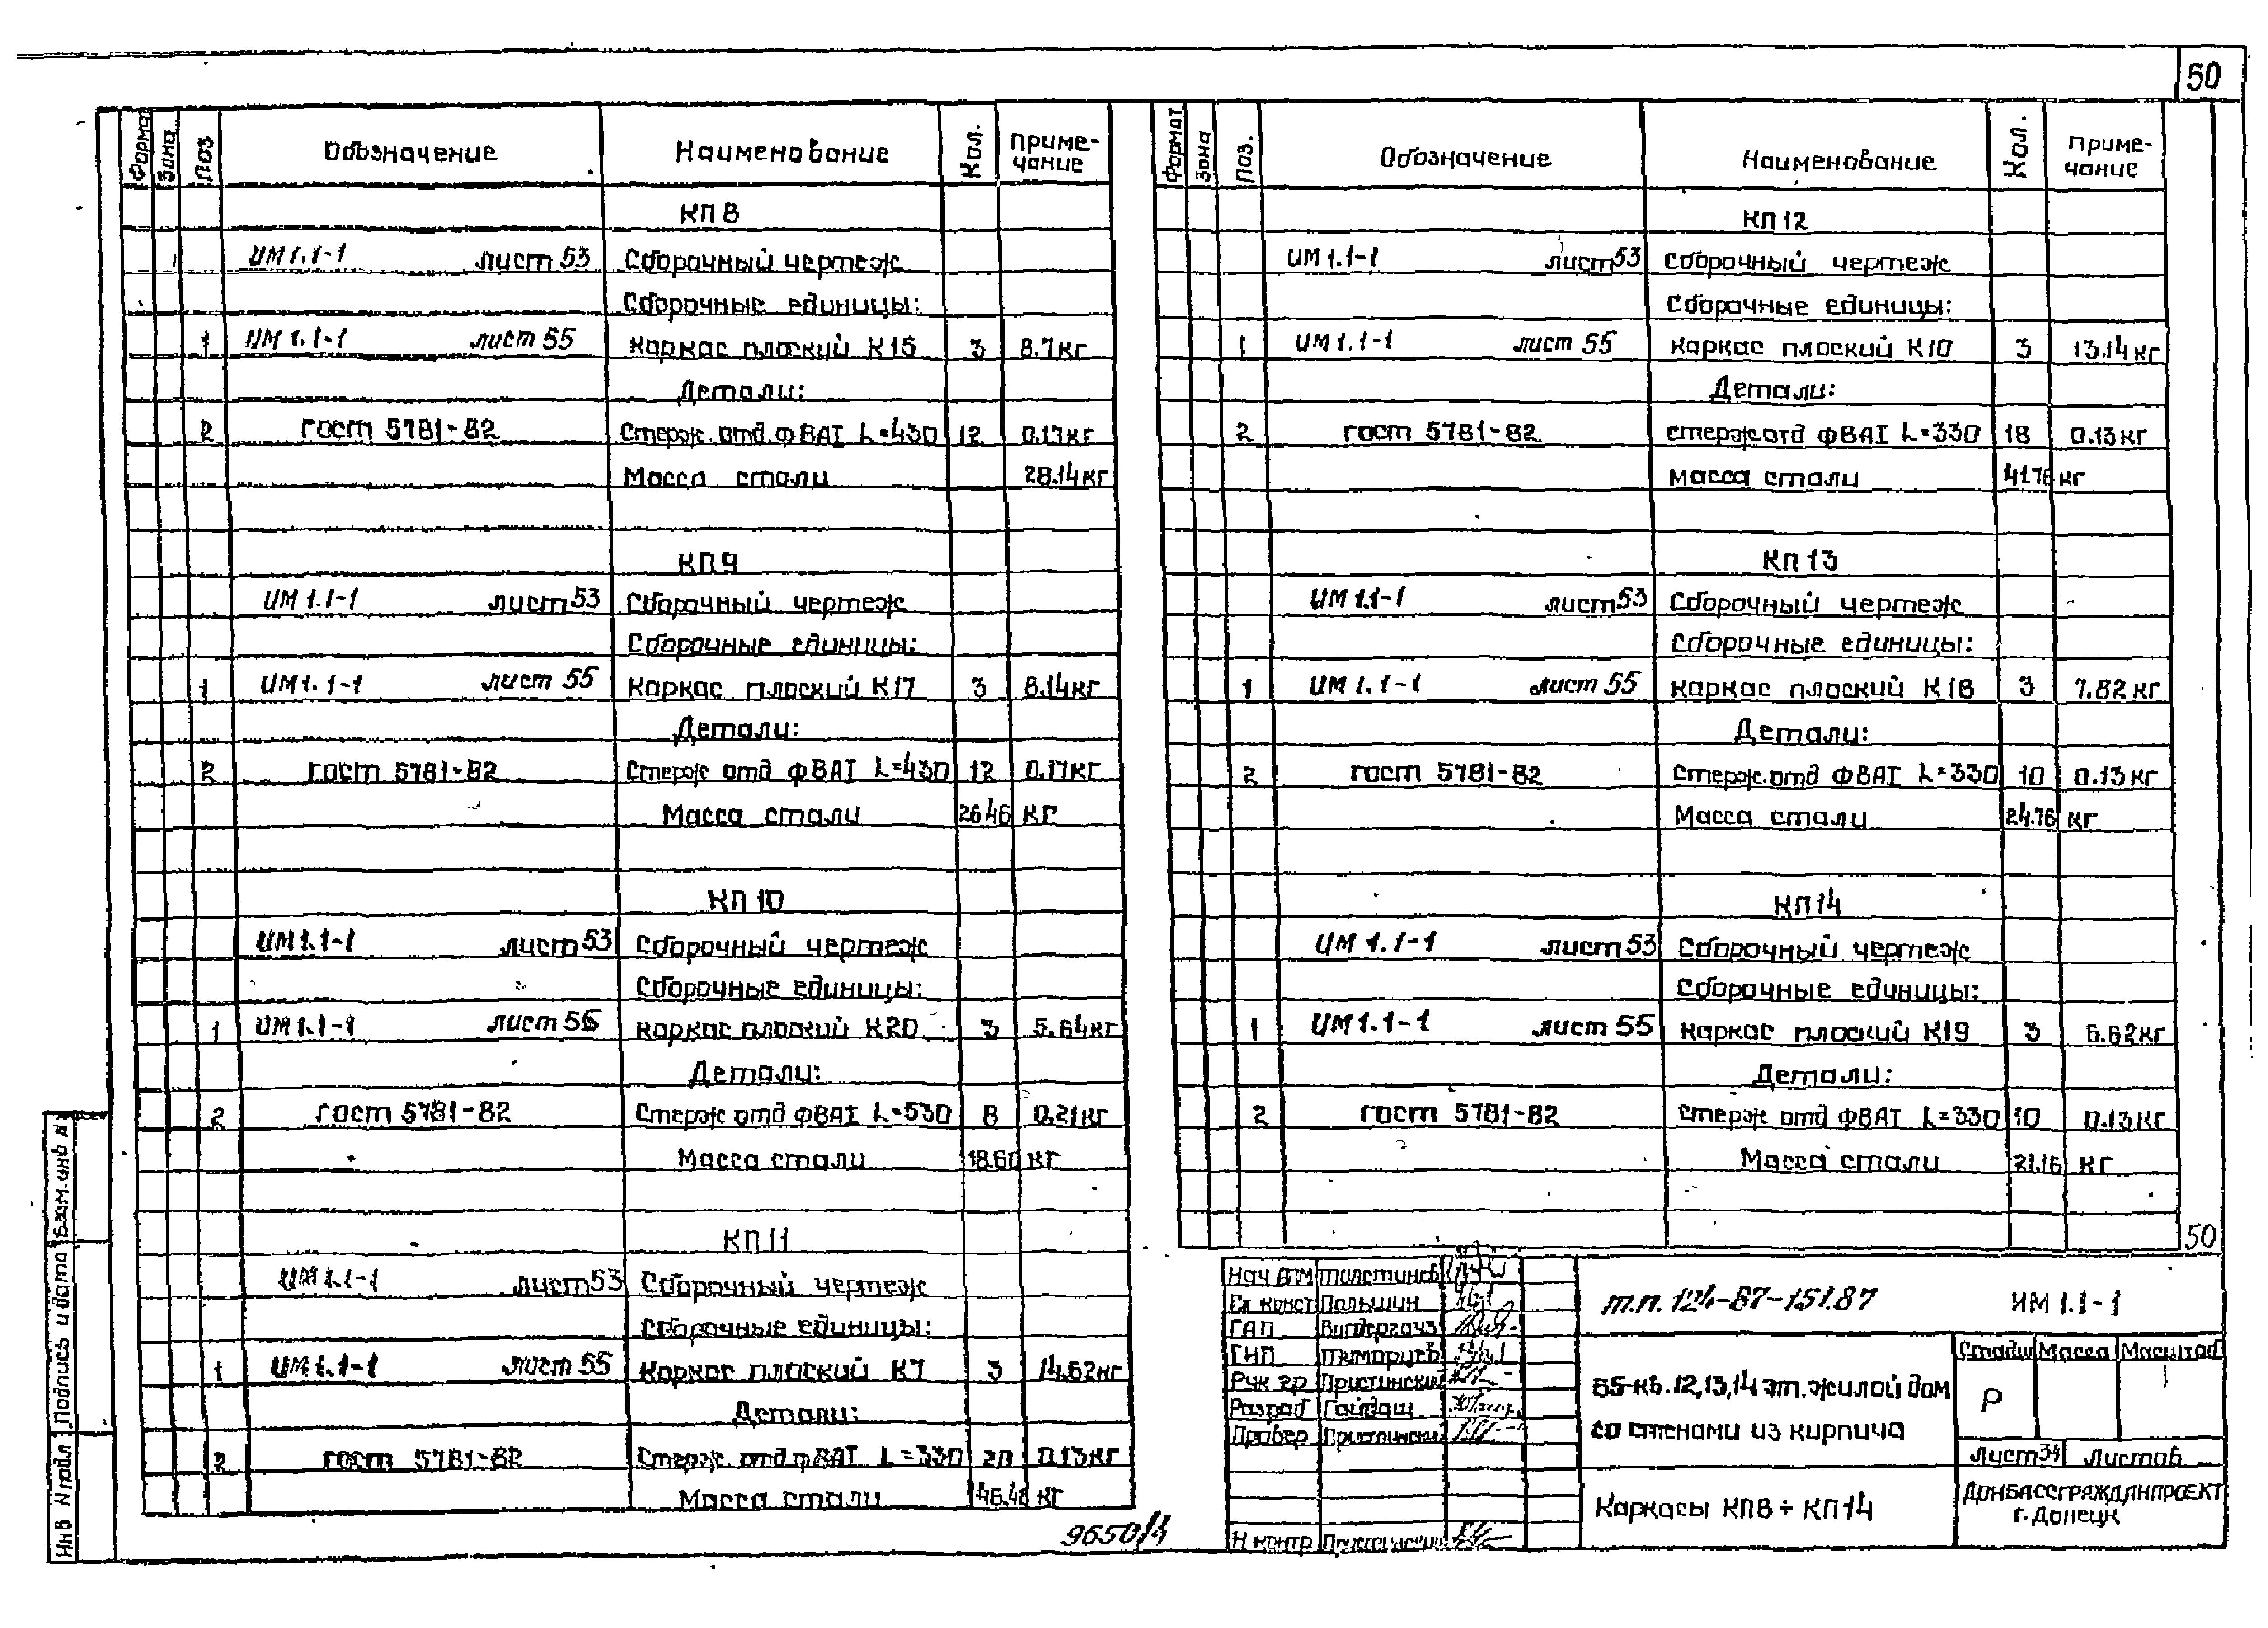 50
Формат Зона Поз Обозначение Наименование Кол. Приме-
чание
КП 8
ИМ 1.1-1 лист 53 Сборочный чертеж
Сборочные единицы:
1 ИМ 1.1-1 лист 55 Каркас плоский К15 3 8.7кг
Детали:
2 гост 5781-82 Стерж. отд. Ф8АI L=430 12 0.17кг
Масса стали 28.14кг
КП 9
ИМ 1.1-1 лист 53 Сборочный чертеж
Сборочные единицы:
1 ИМ 1.1-1 лист 55 Каркас плоский К17 3 8.14кг
Детали:
2 гост 5781-82 Стерж отд Ф8АI L=430 12 0.17кг
Масса стали 26.46 кг
КП 10
ИМ 1.1-1 лист 53 Сборочный чертеж
Сборочные единицы:
1 ИМ 1.1-1 лист 55 Каркас плоский К20 3 5.64кг
Детали:
2 гост 5781-82 Стерж отд Ф8АI L=530 8 0.21кг
Масса стали 18.60 кг
КП 11
ИМ 1.1-1 лист 53 Сборочный чертеж
Сборочные единицы:
1 ИМ 1.1-1 лист 55 Каркас плоский К7 3 14.62кг
Детали:
2 гост 5781-82 Стерж. отд Ф8АI L=330 20 0.13кг
Масса стали 46.46 кг
9650/4
Формат Зона Поз. Обозначение Наименование Кол. Приме-
чание
КП 12
ИМ 1.1-1 лист 53 Сборочный чертеж
Сборочные единицы:
1 ИМ 1.1-1 лист 55 Каркас плоский К10 3 13.14кг
Детали:
2 гост 5781-82 стерж.отд Ф8АI L=330 18 0.13кг
Масса стали 41.76 кг
КП 13
ИМ 1.1-1 лист 53 Сборочный чертеж
Сборочные единицы:
1 ИМ 1.1-1 лист 55 Каркас плоский К18 3 7.82 кг
Детали:
2 гост 5781-82 Стерж.отд Ф8АI L=330 10 0.13кг
Масса стали 24.76 кг
КП 14
ИМ 1.1-1 лист 53 Сборочный чертеж
Сборочные единицы:
1 ИМ 1.1-1 лист 55 Каркас плоский К19 3 6.62кг
Детали:
2 гост 5781-82 Стерж отд Ф8АI L=330 10 0.13кг
Масса стали 21.16 кг
50
Нач
Гл конст Польшин
ГАП
ГИП
Рук гр Пристинский
Разраб Гайдаш
Провер Пристинский
Н контр
т.п. 124-87-151.87 ИМ 1.1-1
65-кв. 12,13,14 эт. жилой дом
со стенами из кирпича
Каркасы КП8 ÷ КП14
Стадия Масса Масштаб
Р
Лист 34 Листов
ДОНБАССГРАЖДАНПРОЕКТ
г. Донецк
Инв № подл Подпись и дата Взам. инв №